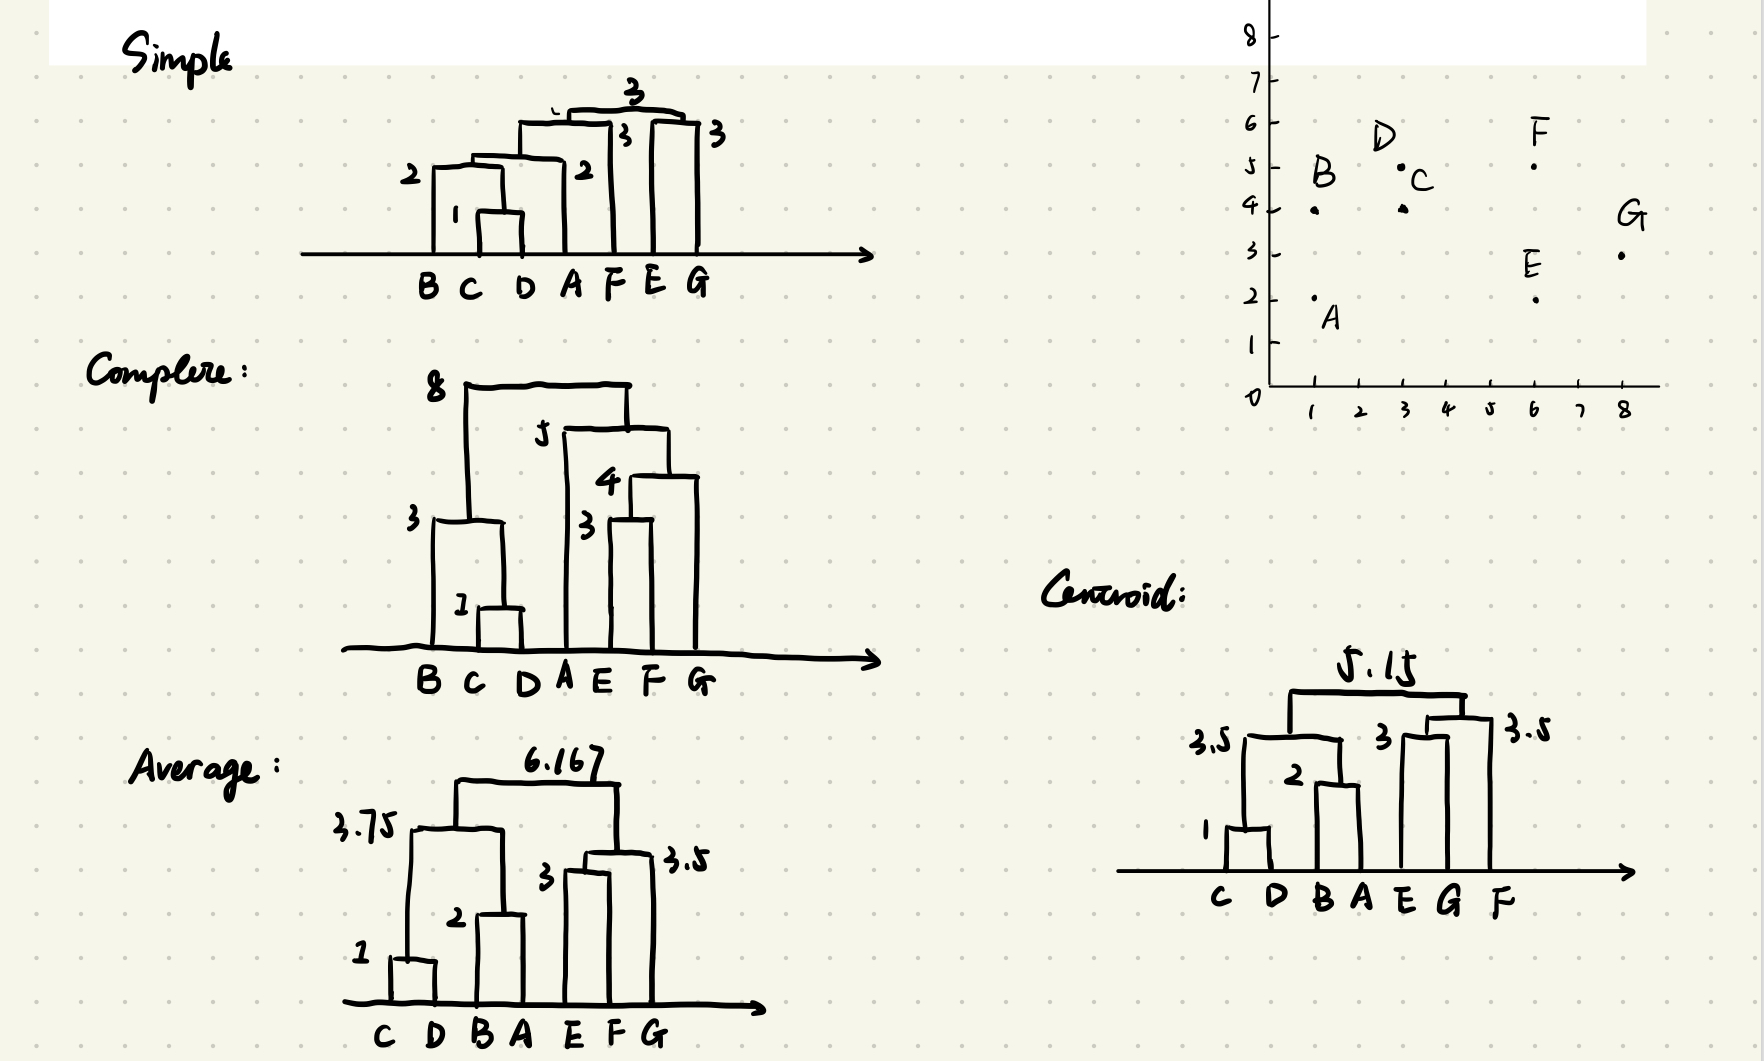 Simple
3
3
3
2
2
1
B C D A F E G
Complere:
8
5
4
3
3
1
B C D A E F G
Average:
6.167
3.75
3.5
3
2
1
C D B A E F G
8
7
6
5
4
3
2
1
0
1 2 3 4 5 6 7 8
D
F
B
C
G
E
A
Centroid:
5.15
3.5
3
3.5
2
1
C D B A E G F